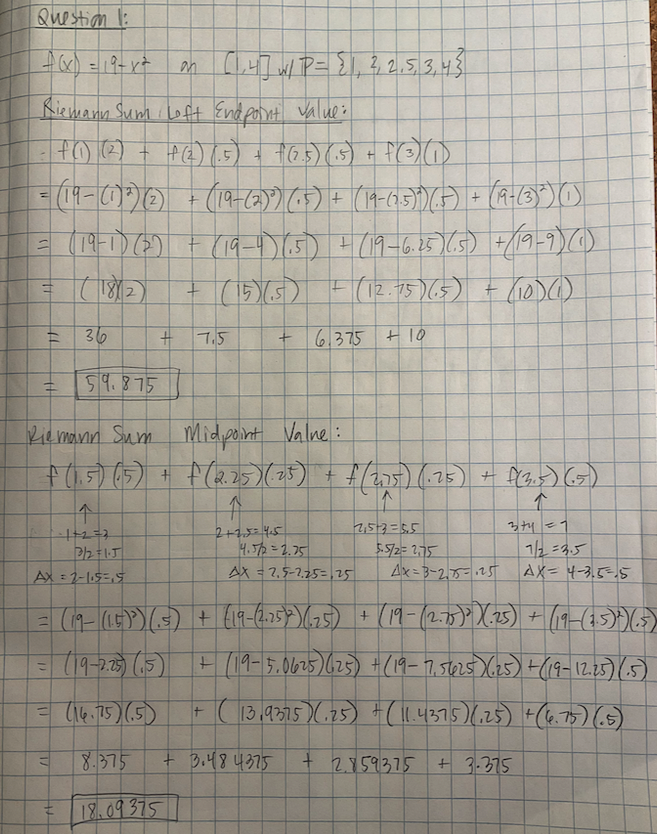 Question 1:
f(x) = 19-x² on [1,4] w/ P = {1, 2, 2.5, 3, 4}
Riemann Sum Left Endpoint Value:
= f(1)(2) + f(2)(.5) + f(2.5)(.5) + f(3)(1)
= (19-(1)²)(2) + (19-(2)²)(.5) + (19-(2.5)²)(.5) + (19-(3)²)(1)
= (19-1)(2) + (19-4)(.5) + (19-6.25)(.5) + (19-9)(1)
= (18)(2) + (15)(.5) + (12.75)(.5) + (10)(1)
= 36 + 7.5 + 6.375 + 10
= 59.875
Riemann Sum Midpoint Value:
f(1.5)(.5) + f(2.25)(.25) + f(2.75)(.25) + f(3.5)(.5)
↑ ↑ ↑ ↑
1+2=3 2+2.5=4.5 2.5+3=5.5 3+4=7
3/2=1.5 4.5/2=2.25 5.5/2=2.75 7/2=3.5
Δx=2-1.5=.5 Δx=2.5-2.25=.25 Δx=3-2.75=.25 Δx=4-3.5=.5
= (19-(1.5)²)(.5) + (19-(2.25)²)(.25) + (19-(2.75)²)(.25) + (19-(3.5)²)(.5)
= (19-2.25)(.5) + (19-5.0625)(.25) + (19-7.5625)(.25) + (19-12.25)(.5)
= (16.75)(.5) + (13.9375)(.25) + (11.4375)(.25) + (6.75)(.5)
= 8.375 + 3.484375 + 2.859375 + 3.375
= 18.09375